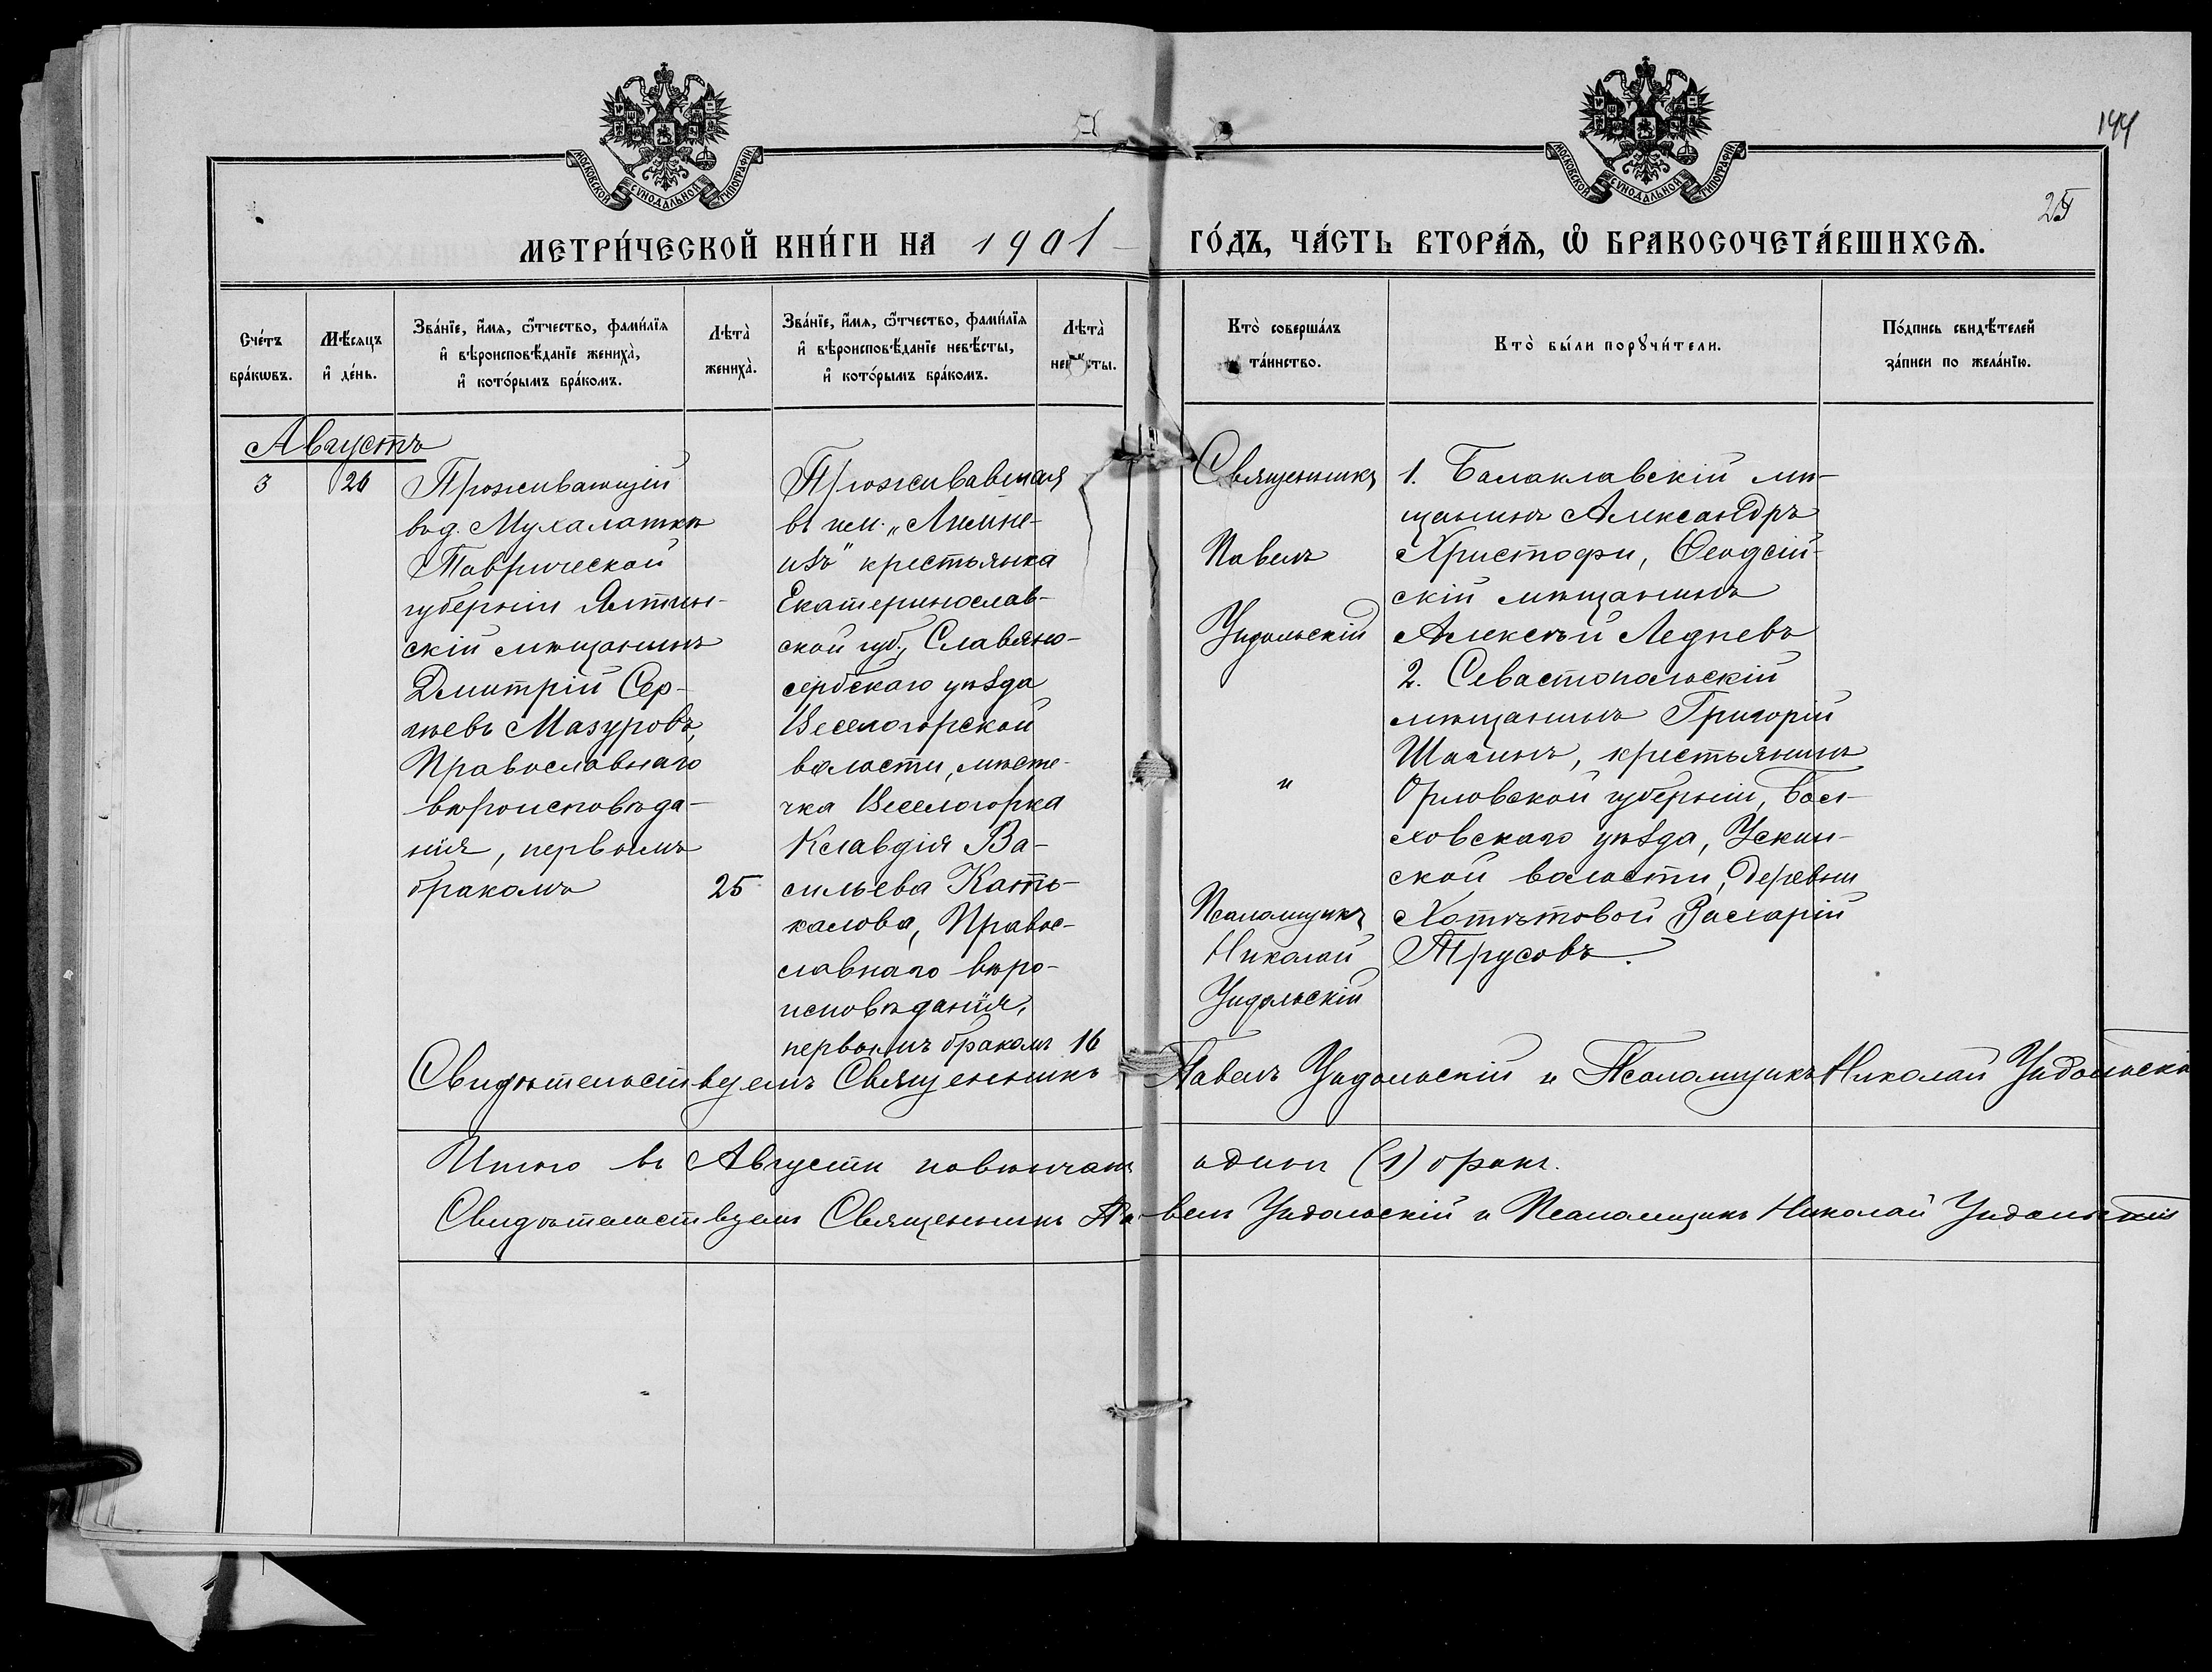 144
25
МОСКОВСКОЙ СѴНОДАЛЬНОЙ ТИПОГРАФІИ
МОСКОВСКОЙ СѴНОДАЛЬНОЙ ТИПОГРАФІИ
МЕТРИ́ЧЕСКОЙ КНИ́ГИ НА 1901
ГО́ДЪ, ЧА́СТЬ ВТОРА́Я, Ѽ БРАКОСОЧЕТА́ВШИХСЯ.
Сче́тъ
бра́кѡвъ.
Мѣ́сяцъ
и҆ де́нь.
Зва́нїе, и҆́мя, ѻ҆́тчество, фами́лїя
и҆ вѣроисповѣ́данїе жениха̀,
и҆ кото́рымъ бра́комъ.
Лѣта̀
жениха̀.
Зва́нїе, и҆́мя, ѻ҆́тчество, фами́лїя
и҆ вѣроисповѣ́данїе невѣ́сты,
и҆ кото́рымъ бра́комъ.
Лѣта̀
невѣ́сты.
Кто̀ соверша́лъ
та́инство.
Кто̀ бы́ли порꙋчи́тели.
По́дпись свидѣ́телей
за́писи по жела́нїю.
Августъ
3
26
Проживающій
въ д. Мухалатки
Таврической
губерніи Ялтин-
скій мѣщанинъ
Дмитрій Сер-
гѣевъ Мазуровъ,
Православнаго
вѣроисповѣда-
нія, первымъ
бракомъ
25
Проживавшая
въ им. „Лимне-
изъ" крестьянка
Екатеринослав-
ской губ., Славяно-
сербскаго уѣзда
Веселогорской
волости, мѣсте-
чка Веселогорка
Клавдія Ва-
сильева Кать-
калова, Правос-
лавнаго вѣро-
исповѣданія,
первымъ бракомъ 16
Священникъ
Павелъ
Ундольскій
и
Псаломщикъ
Николай
Ундольскій
1. Балаклавскій мѣ-
щанинъ Александръ
Христофи, Ѳеодсій-
скій мѣщанинъ
Алексѣй Ледневъ
2. Севастопольскій
мѣщанинъ Григорій
Шагинъ, крестьянинъ
Орловской губерніи, Бол-
ховскаго уѣзда, Ускин-
ской волости, деревни
Хотѣтовой Захарій
Трусовъ.
Свидѣтельствуемъ Священникъ Павелъ Ундольскій и Псаломщикъ Николай Ундольскій
Итого въ Августѣ повѣнчанъ одинъ (1) бракъ.
Свидѣтельствуемъ Священникъ Павелъ Ундольскій и Псаломщикъ Николай Ундольскій